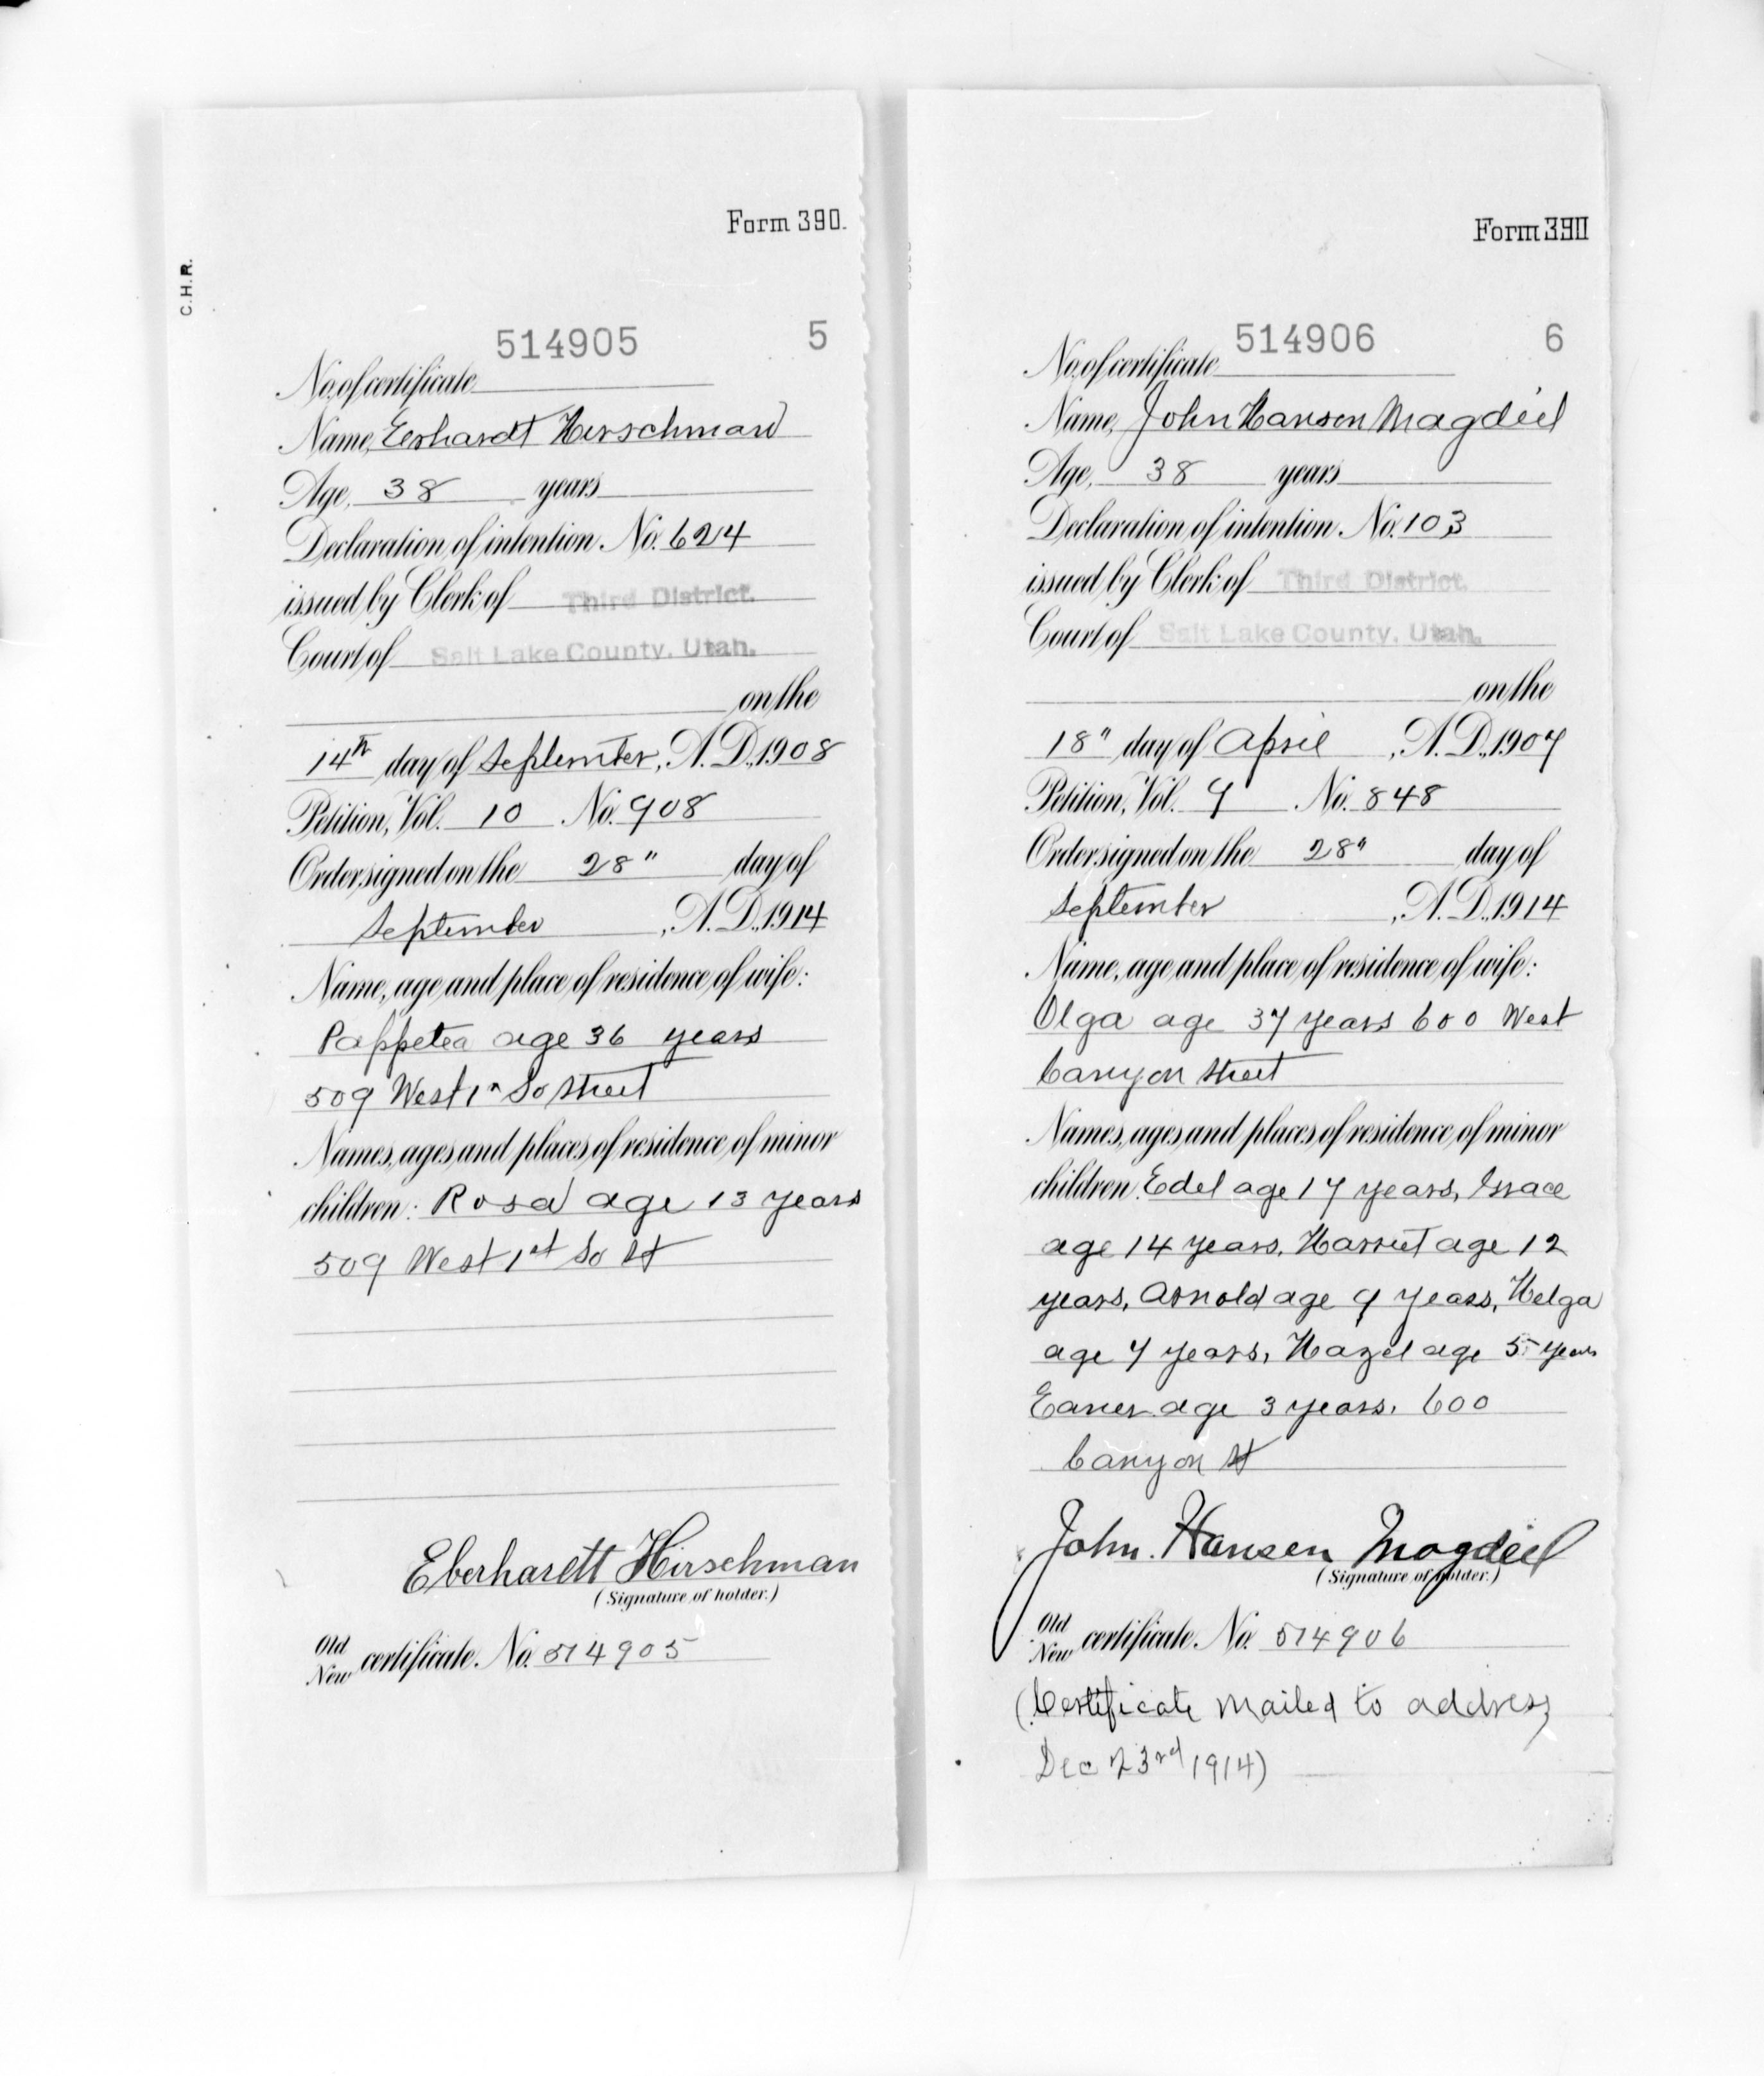 Form 390.
C.H.R.
514905 5
No. of certificate
Name, Eerhardt Hirschman
Age, 38 years
Declaration of intention No. 624
issued by Clerk of Third District.
Court of Salt Lake County, Utah.
on the
14th day of September, A.D., 1908
Petition, Vol. 10 No. 908
Order signed on the 28" day of
September, A.D., 1914
Name, age and place of residence of wife:
Pappetea age 36 years
509 West 1" So Street
Names, ages and places of residence of minor
children: Rosa age 13 years
509 West 1st So St
Eberhardt Hirschman
(Signature of holder.)
Old
New certificate. No. 514905
Form 390
514906 6
No. of certificate
Name, John Hansen Magdiel
Age, 38 years
Declaration of intention No. 103
issued by Clerk of Third District.
Court of Salt Lake County, Utah.
on the
18" day of April, A.D., 1907
Petition, Vol. 9 No. 848
Order signed on the 28" day of
September, A.D., 1914
Name, age and place of residence of wife:
Olga age 37 years 600 West
Canyon Street
Names, ages and places of residence of minor
children. Edel age 17 years, Grace
age 14 years, Harriet age 12
years, Arnold age 9 years, Helga
age 7 years, Hazel age 5 years
age 3 years. 600
Canyon St
John. Hansen Magdiel
(Signature of holder.)
Old
New certificate. No. 514906
(Certificate mailed to address
Dec 23rd 1914)